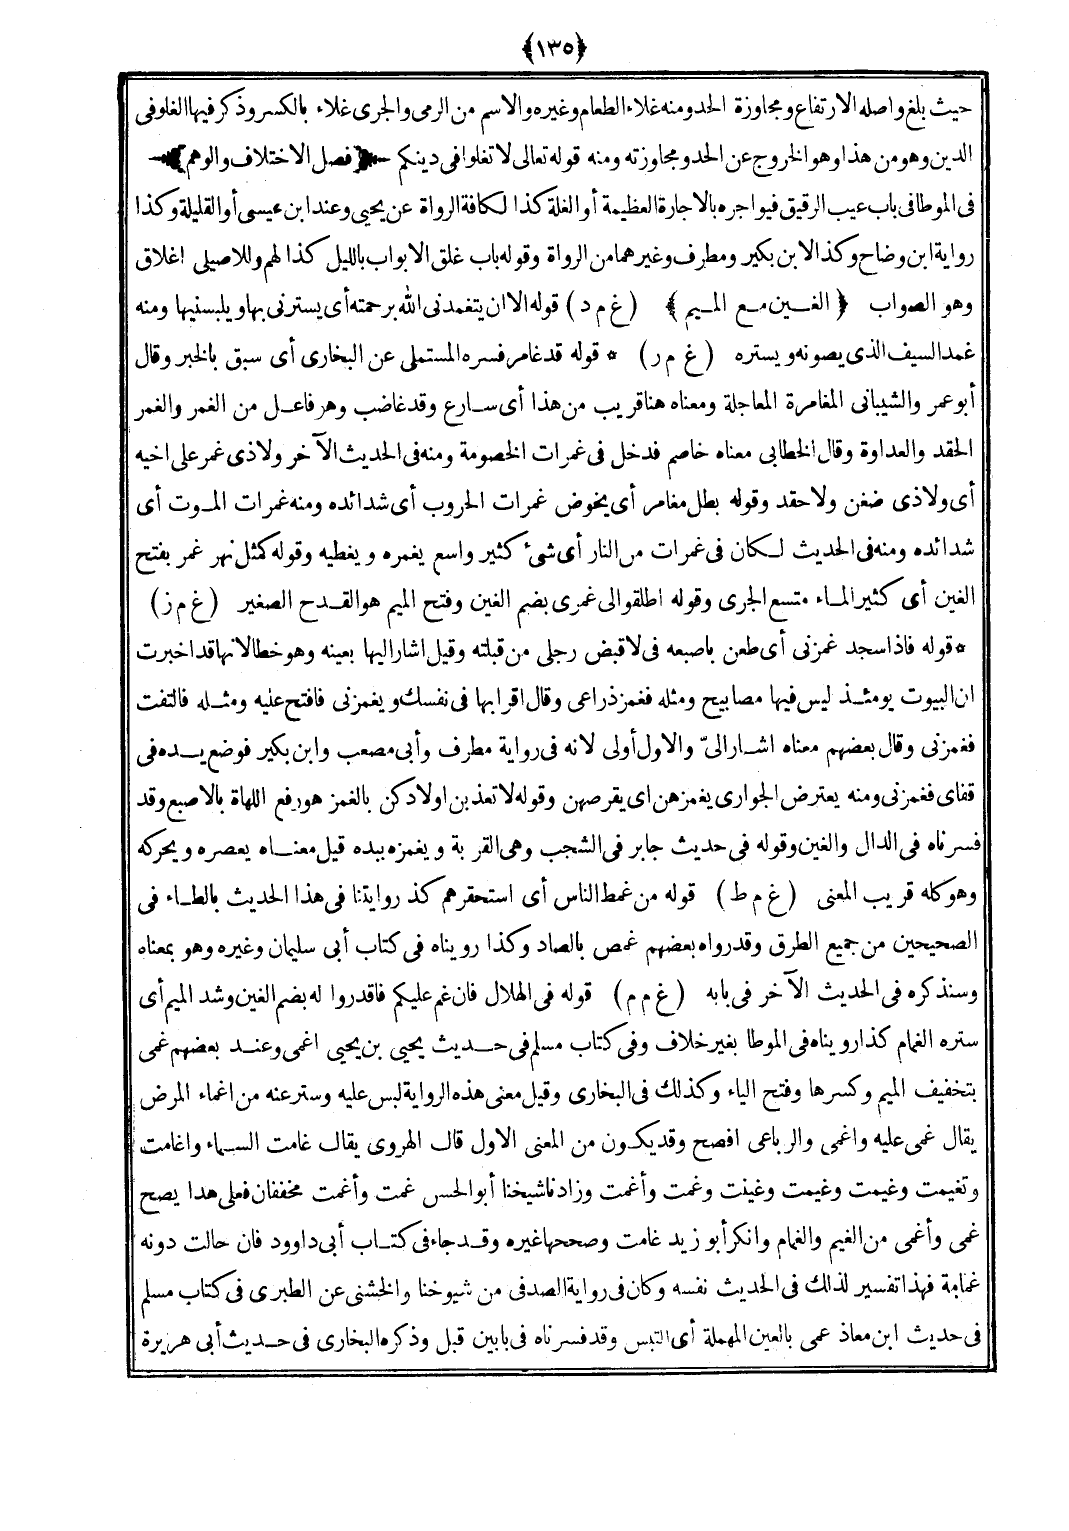 ﴿١٣٥﴾
حيث بلغ واصله الارتفاع ومجاوزة الحد ومنه غلاء الطعام وغيره والاسم من الرمى والجرى غلاء بالكسر وذكر فيها الغلو فى
الدين وهو من هذا وهو الخروج عن الحد ومجاوزته ومنه قوله تعالى لا تغلوا فى دينكم ﴿فصل الاختلاف والوهم﴾
فى الموطا فى باب عيب الرقيق فيواجره بالاجارة العظيمة أو الغلة كذا لكافة الرواة عن يحيى وعند ابن عيسى أو القليلة وكذا
رواية ابن وضاح وكذا لابن بكير ومطرف وغيرهما من الرواة وقوله باب غلق الابواب بالليل كذا لهم وللاصيلى اغلاق
وهو الصواب ﴿ الغين مع الميم ﴾ (غ م د) قوله الا ان يتغمدنى الله برحمته أى يسترنى بها ويلبسنيها ومنه
غمد السيف الذى يصونه ويستره (غ م ر) * قوله قد غامر فسره المستملى عن البخارى أى سبق بالخير وقال
أبو عمر والشيبانى المغامرة المعاجلة ومعناه هنا قريب من هذا أى سارع وقد غاضب وهر فاعل من الغمر والغمر
الحقد والعداوة وقال الخطابى معناه خاصم فدخل فى غمرات الخصومة ومنه فى الحديث الآخر ولا ذى غمر على اخيه
أى ولا ذى ضغن ولا حقد وقوله بطل مغامر أى يخوض غمرات الحروب أى شدائده ومنه غمرات الموت أى
شدائده ومنه فى الحديث لكان فى غمرات من النار أى شئ كثير واسع يغمره ويغطيه وقوله كمثل نهر غمر بفتح
الغين أى كثير الماء متسع الجرى وقوله اطلقوا لى غمرى بضم الغين وفتح الميم هو القدح الصغير (غ م ز)
* قوله فاذا سجد غمزنى أى طعن باصبعه فى لاقبض رجلى من قبلته وقيل اشار اليها بعينه وهو خطا لانها قد اخبرت
ان البيوت يومئذ ليس فيها مصابيح ومثله فغمز ذراعى وقال اقرا بها فى نفسك ويغمزنى فافتح عليه ومثله فالتفت
فغمزنى وقال بعضهم معناه اشار الىّ والاول أولى لانه فى رواية مطرف وأبى مصعب وابن بكير فوضع يده فى
قفاى فغمزنى ومنه يعترض الجوارى يغمزهن اى يقرصهن وقوله لا تعذبن اولادكن بالغمز هو رفع اللهاة بالاصبع وقد
فسرناه فى الدال والغين وقوله فى حديث جابر فى الشجب وهى القربة ويغمزه بيده قيل معناه يعصره ويحركه
وهو كله قريب المعنى (غ م ط) قوله من غمط الناس أى استحقرهم كذ روايتنا فى هذا الحديث بالطاء فى
الصحيحين من جميع الطرق وقد رواه بعضهم غمص بالصاد وكذا رويناه فى كتاب أبى سليمان وغيره وهو بمعناه
وسنذكره فى الحديث الآخر فى بابه (غ م م) قوله فى الهلال فان غم عليكم فاقدروا له بضم الغين وشد الميم أى
ستره الغمام كذا رويناه فى الموطا بغير خلاف وفى كتاب مسلم فى حديث يحيى بن يحيى اغمى وعند بعضهم غمى
بتخفيف الميم وكسرها وفتح الياء وكذلك فى البخارى وقيل معنى هذه الرواية لبس عليه وستر عنه من اغماء المرض
يقال غمى عليه واغمى والرباعى افصح وقد يكون من المعنى الاول قال الهروى يقال غامت السماء واغامت
وتغيمت وغيمت وغيمت وغينت وغمت وأغمت وزادنا شيخنا أبو الحسن غمت وأغمت مخففان فعلى هدا يصح
غمى وأغمى من الغيم والغمام وانكر أبو زيد غامت وصححها غيره وقد جاء فى كتاب أبى داوود فان حالت دونه
غمامة فهذا تفسير لذلك فى الحديث نفسه وكان فى رواية الصدفى من شيوخنا والخشنى عن الطبرى فى كتاب مسلم
فى حديث ابن معاذ عمى بالعين المهملة أى التبس وقد فسرناه فى بابين قبل وذكره البخارى فى حديث أبى هريرة